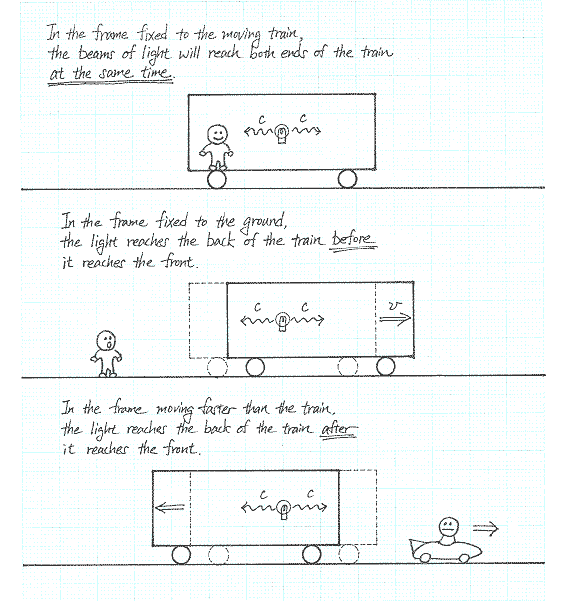 In the frame fixed to the moving train,
the beams of light will reach both ends of the train
at the same time.
c c
In the frame fixed to the ground,
the light reaches the back of the train before
it reaches the front.
c c v
In the frame moving faster than the train,
the light reaches the back of the train after
it reaches the front.
c c